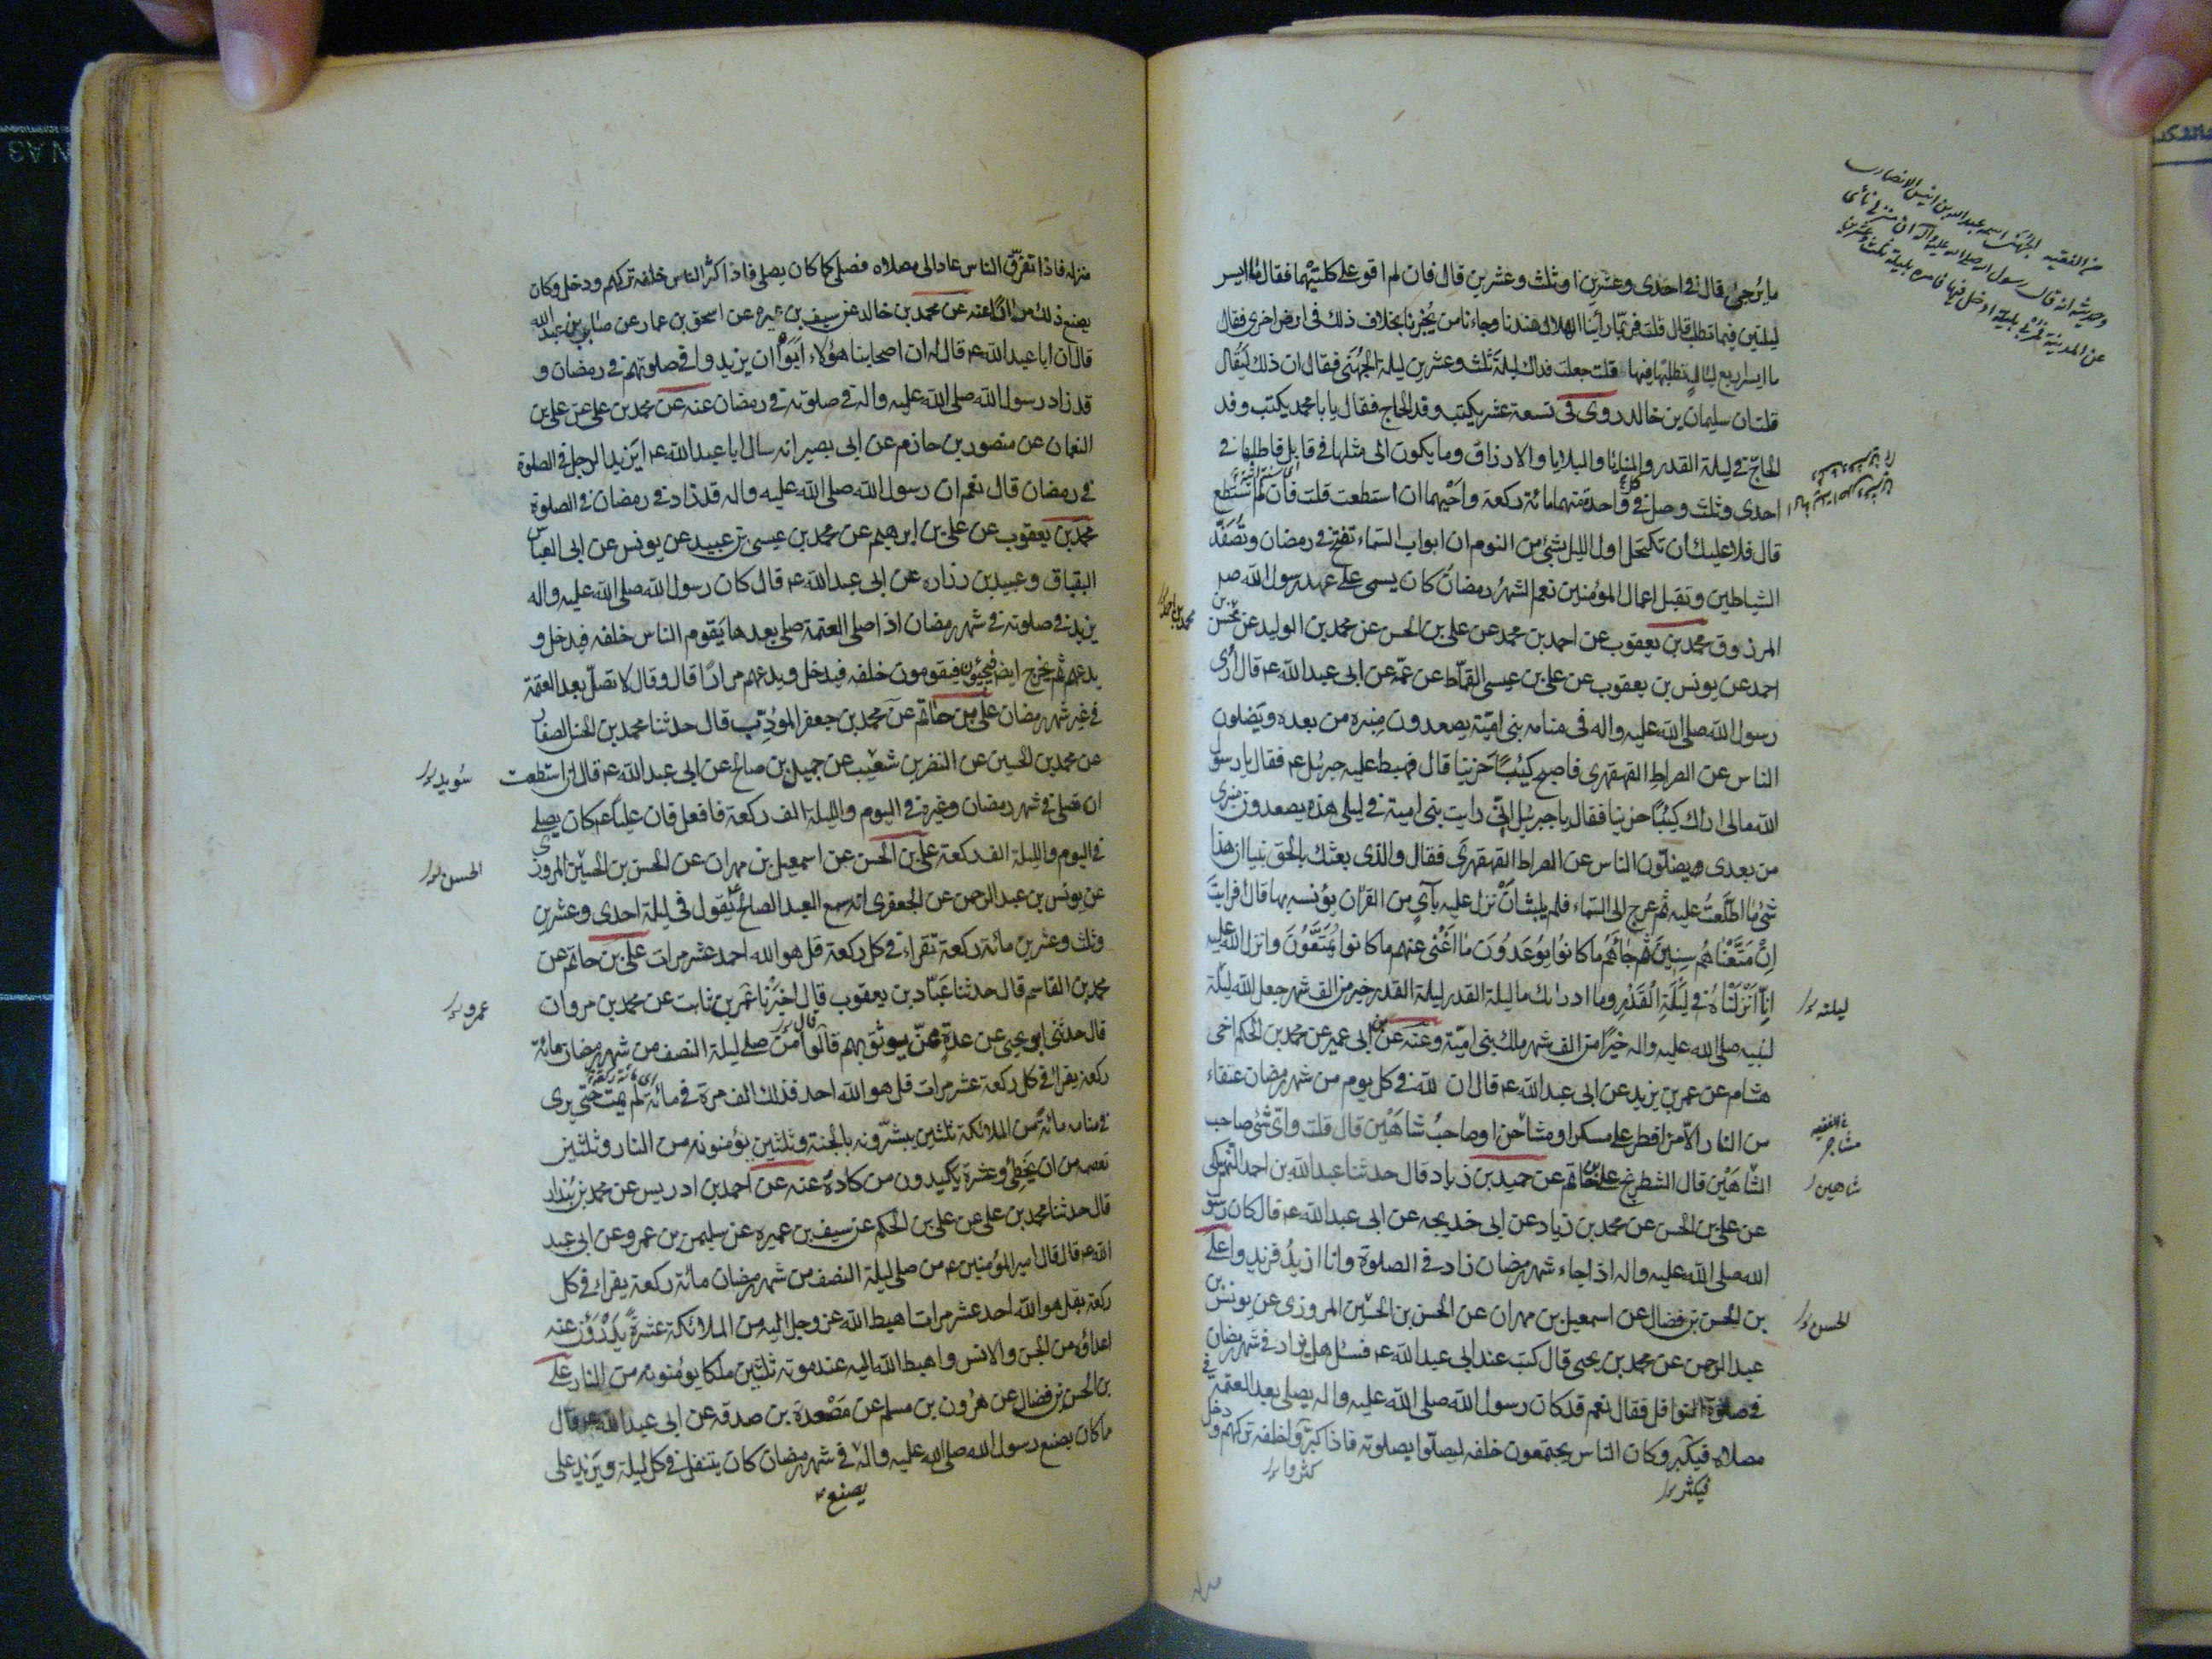 ما يرجى قال في احدى وعشرين او ثلث وعشرين قال فان لم اقو على كلتيهما فقال ما ايسر
ليلتين فيما تطلب قال قلت فربما راينا الهلال عندنا وجاءنا من يخبرنا بخلاف ذلك في ارض اخرى فقال
ما ايسر اربع ليال تطلبها فيها قلت جعلت فداك ليلة ثلث وعشرين ليلة الجهني فقال ان ذلك ليقال
قلت ان سليمان بن خالد روى في تسعة عشر يكتب وفد الحاج فقال يا با محمد يكتب وفد
الحاج في ليلة القدر والمنايا والبلايا والارزاق وما يكون الى مثلها في قابل فاطلبها في
احدى وثلث وصل في واحدة منهما مائة ركعة واحيهما ان استطعت قلت فان لم تستطع
قال فلا عليك ان تكتحل اول الليل بشئ من النوم ان ابواب السماء تفتح في رمضان وتصفد
الشياطين وتقبل اعمال المؤمنين نعم الشهر رمضان كان يسمى على عهد رسول الله ص
المرزوق محمد بن يعقوب عن احمد بن محمد عن على بن الحسن عن محمد بن الوليد عن محسن بن
احمد عن يونس بن يعقوب عن على بن عيسى القماط عن عمه عن ابى عبد الله ع قال أرى
رسول الله صلى الله عليه واله في منامه بنى امية يصعدون منبره من بعده ويضلون
الناس عن الصراط القهقرى فاصبح كئيبا حزينا قال فهبط عليه جبرئيل ع فقال يا رسول
الله مالى اراك كئيبا حزينا فقال يا جبرئيل انى رايت بنى امية في ليلى هذه يصعدون منبرى
من بعدى ويضلون الناس عن الصراط القهقرى فقال والذى بعثك بالحق نبيا ان هذا
شئ ما اطلعت عليه ثم عرج الى السماء فلم يلبث ان نزل عليه بآي من القران يؤنسه بها قال افرايت
ان متعناهم سنين ثم جاءهم ما كانوا يوعدون ما اغنى عنهم ما كانوا يمتعون وانزل الله عليه
انا انزلناه في ليلة القدر وما ادراك ما ليلة القدر ليلة القدر خير من الف شهر جعل الله ليلة
لنبيه صلى الله عليه واله خيرا من الف شهر ملك بنى امية وعنه عن ابن ابى عمير عن محمد بن الحكم اخى
هشام عن عمر بن يزيد عن ابى عبد الله ع قال ان لله في كل يوم من شهر رمضان عتقاء
من النار الا من افطر على مسكر او مشاحن او صاحب شاهين قال قلت واى شئ صاحب
الشاهين قال الشطرنج على بن حاتم عن حميد بن زياد قال حدثنا عبد الله بن احمد النهيكى
عن على بن الحسن عن محمد بن زياد عن ابى خديجه عن ابى عبد الله ع قال كان رسول
الله صلى الله عليه واله اذا جاء شهر رمضان زاد في الصلوة وانا ازيد فزيدوا على
بن الحسن بن فضال عن اسمعيل بن مهران عن الحسن بن الحسين المروزى عن يونس بن
عبد الرحمن عن محمد بن يحيى قال كنت عند ابى عبد الله ع فسئل هل يزاد في شهر رمضان
في صلوة النوافل فقال نعم قد كان رسول الله صلى الله عليه واله يصلى بعد العتمة في
مصلاه فيكبر وكان الناس يجتمعون خلفه ليصلوا بصلوته فاذا كبروا خلفه تركهم ودخل
ليلته
في الفقيه
مشاجر
شاهين
الحسن
فيكثر
كثروا
منزله فاذا تفرق الناس عاد الى مصلاه فصلى كما كان يصلى فاذا كثر الناس خلفه تركهم ودخل وكان
يصنع ذلك مرارا عنه عن محمد بن خالد عن سيف بن عميره عن اسحق بن عمار عن صابر بن عبد الله
قال ان ابا عبد الله ع قال له ان اصحابنا هؤلاء ابوا ان يزيدوا في صلوتهم في رمضان و
قد زاد رسول الله صلى الله عليه واله في صلوته في رمضان عنه عن محمد بن على عن على بن
النعمان عن منصور بن حازم عن ابى بصير انه سال ابا عبد الله ع ايزيد الرجل في الصلوة
في رمضان قال نعم ان رسول الله صلى الله عليه واله قد زاد في رمضان في الصلوة
محمد بن يعقوب عن على بن ابرهيم عن محمد بن عيسى بن عبيد عن يونس عن ابى العباس
البقباق وعبيد بن زراره عن ابى عبد الله ع قال كان رسول الله صلى الله عليه واله
يزيد في صلوته في شهر رمضان اذا صلى العتمة صلى بعدها يقوم الناس خلفه فيدخل و
يدعهم ثم يخرج ايضا فيجيئون فيقومون خلفه فيدخل ويدعهم مرارا قال وقال لا تصل بعد العتمة
في غير شهر رمضان على بن حاتم عن محمد بن جعفر المؤدب قال حدثنا محمد بن الحسن الصفار
عن محمد بن الحسين عن النضر بن شعيب عن جميل بن صالح عن ابى عبد الله ع قال ان استطعت
ان تصلى في شهر رمضان وغيره في اليوم والليلة الف ركعة فافعل فان عليا ع كان يصلى
في اليوم والليلة الف ركعة على بن الحسن عن اسمعيل بن مهران عن الحسن بن الحسين المروزى
عن يونس بن عبد الرحمن عن الجعفرى انه سمع العبد الصالح ع يقول في ليلة احدى وعشرين
وثلث وعشرين مائة ركعة تقراء في كل ركعة قل هو الله احد عشر مرات على بن حاتم عن
محمد بن القاسم قال حدثنا عباد بن يعقوب قال اخبرنا عمر بن ثابت عن محمد بن مروان
قال حدثنى ابو يحيى عن عدة ممن يوثق بهم قالوا من صلى ليلة النصف من شهر رمضان مائة
ركعة يقرا في كل ركعة عشر مرات قل هو الله احد فذلك الف مرة في مائة لم يمت حتى يرى
في منامه مائة من الملائكة ثلثين يبشرونه بالجنة وثلثين يؤمنونه من النار وثلثين
تعصمه من ان يخطئ وعشرة يكيدون من كاده عنه عن احمد بن ادريس عن محمد بن بندار
قال حدثنا محمد بن على عن على بن الحكم عن سيف بن عميره عن سليمن بن عمرو عن ابى عبد
الله ع قال قال امير المؤمنين ع من صلى ليلة النصف من شهر رمضان مائة ركعة يقراء في كل
ركعة بقل هو الله احد عشر مرات اهبط الله عز وجل اليه من الملائكة عشرة يدرؤن عنه
اعداؤه من الجن والانس واهبط الله اليه عند موته ثلثين ملكا يؤمنونه من النار على
بن الحسن بن فضال عن هرون بن مسلم عن مصعدة بن صدقه عن ابى عبد الله ع قال
ما كان يصنع رسول الله صلى الله عليه واله في شهر رمضان كان يتنفل في كل ليلة ويزيد على
سويد
الحسن
عمرو
يصنع